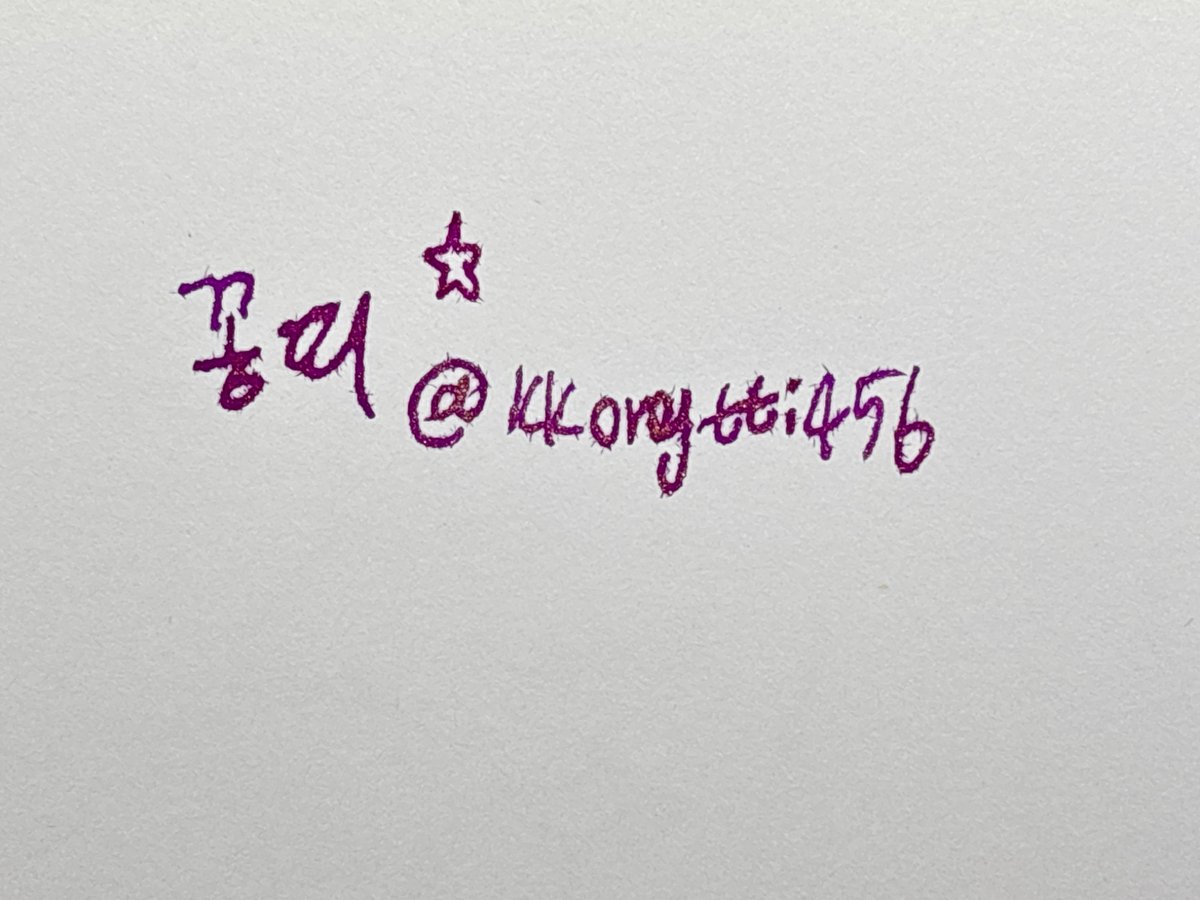 꽁띠
@kkongtti456